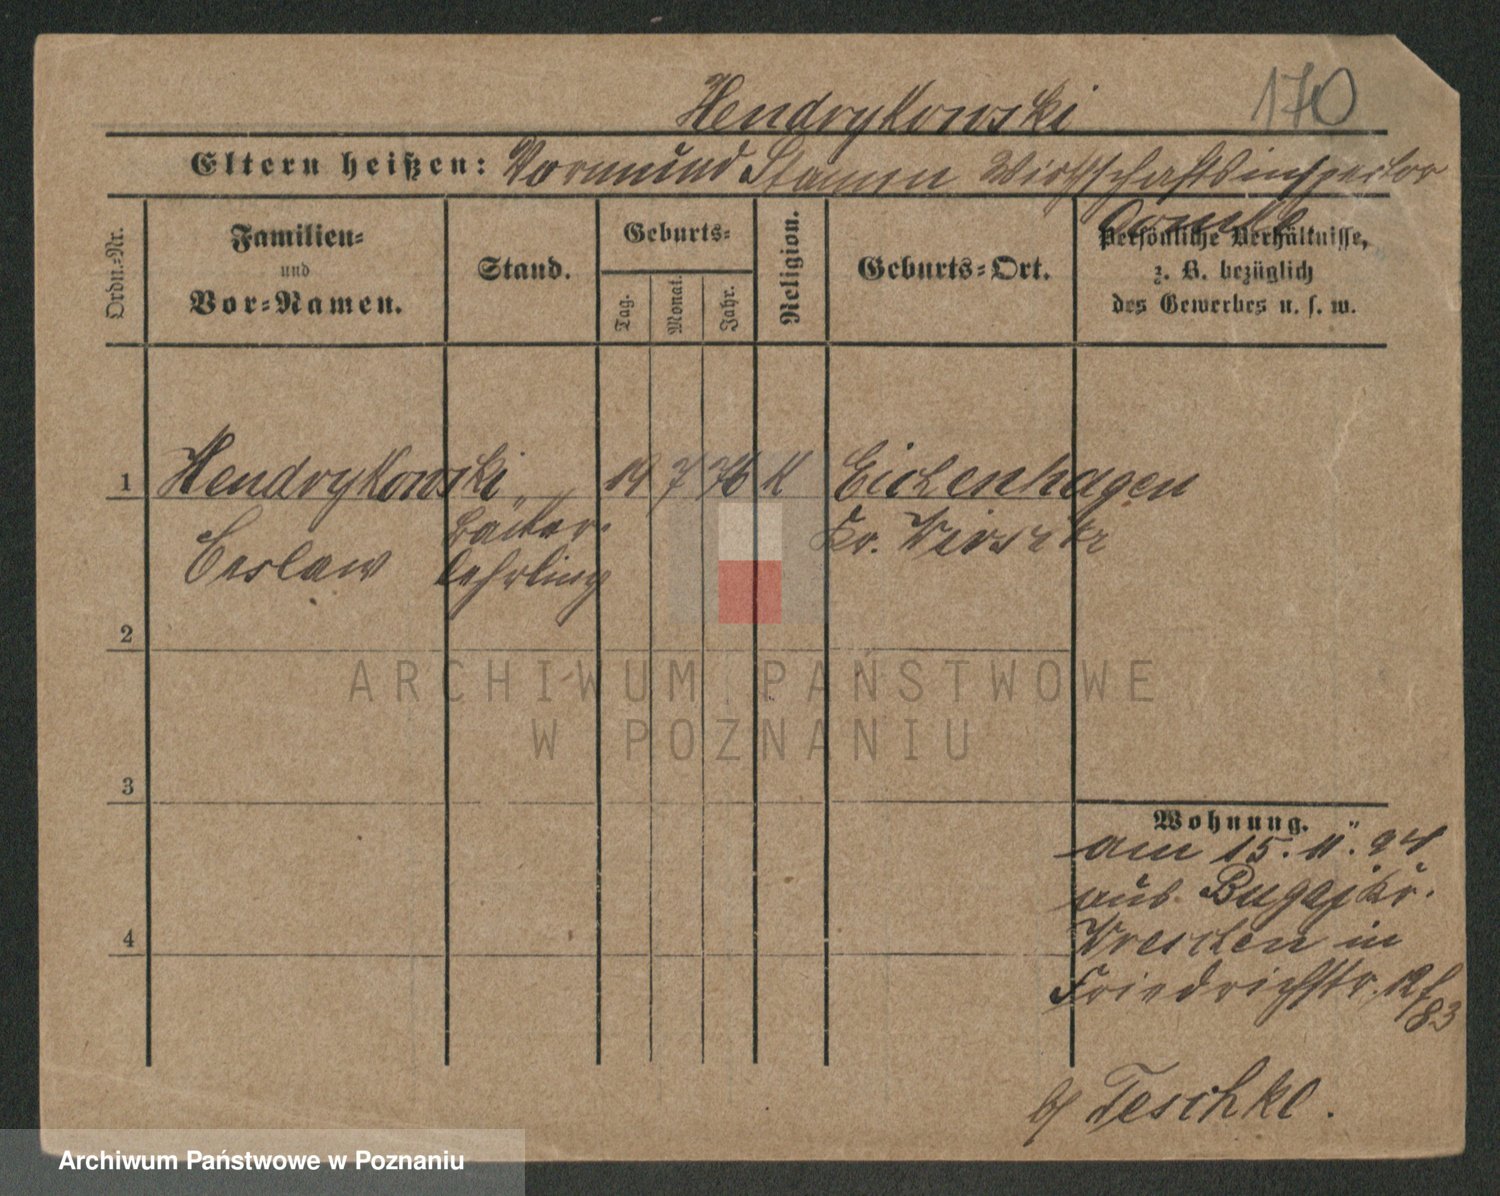 170
Hendrykowski
Eltern heißen: Vormund Stamm Wirthschaftsinspector
Ordn.-Nr.
Familien-
und
Vor-Namen.
Stand.
Geburts-
Tag.
Monat.
Jahr.
Religion.
Geburts-Ort.
Persönliche Verhältnisse,
z. B. bezüglich
des Gewerbes u. s. w.
1 Hendrykowski 19 7 76 K Eichenhagen
Bäcker- Kr. Wirsitz
Ceslaw lehrling
2
ARCHIWUM PAŃSTWOWE
W POZNANIU
3
Wohnung.
am 15. 11. 94
aus Bugaj Kr.
Wreschen in
Friedrichstr. 12
83
4
bei Teschke.
Archiwum Państwowe w Poznaniu